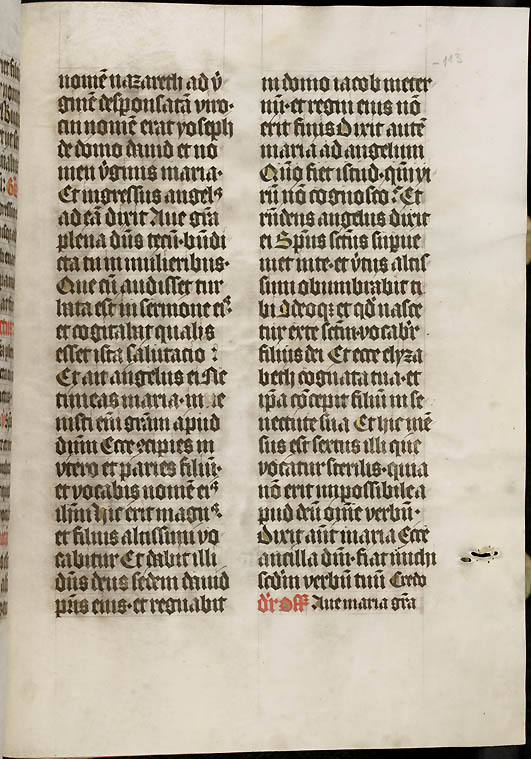 113
nomē nazareth ad ṽ
ginē desponsatā viro·
cui nomē erat yoseph
de domo dauid et no
men v̄ginis maria·
Et ingressus angelꝰ
ad eā dixit Aue grā
plena dūs tecū·bn̄di
cta tu in mulieribus·
Que cū audisset tur
bata est in sermone eiꝰ
et cogitabat qualis
esset ista salutatio :
Et ait angelus ei Ne
timeas maria· inue
nisti eni grām apud
dūm Ecce ꝯcipies in
vtero et paries filiū·
et vocabis nomē eiꝰ
ihm̄ Hic erit magnꝰ·
et filius altissimi vo
cabitur Et dabit illi
dūs deus sedem dauid
pr̄is eius·et regnabit
in domo iacob ineter
nū·et regni eius nō
erit finis Dixit autē
maria ad angelum
Quō fiet istud·qm̄ vi
rū nō cognosco? Et
rn̄dens angelus dixit
ei Spūs scūs supue
niet in te·et v̄tus altis
simi obumbrabit ti
bi Ideoqꝫ et qd̄ nasce
tur ex te scūm·vocabr̄
filius dei Et ecce elyza
beth cognata tua·et
ip̄a cōcepit filiū in se
nectute sua Et hic mē
sis est sextus illi que
vocatur sterilis·quia
nō erit impossibile a
pud deū om̄e verbū·
Dixit aūt maria Ecce
ancilla dn̄i·fiat michi
scd̄m verbū tuū Credo
dr̄ Off̄ Aue maria grā